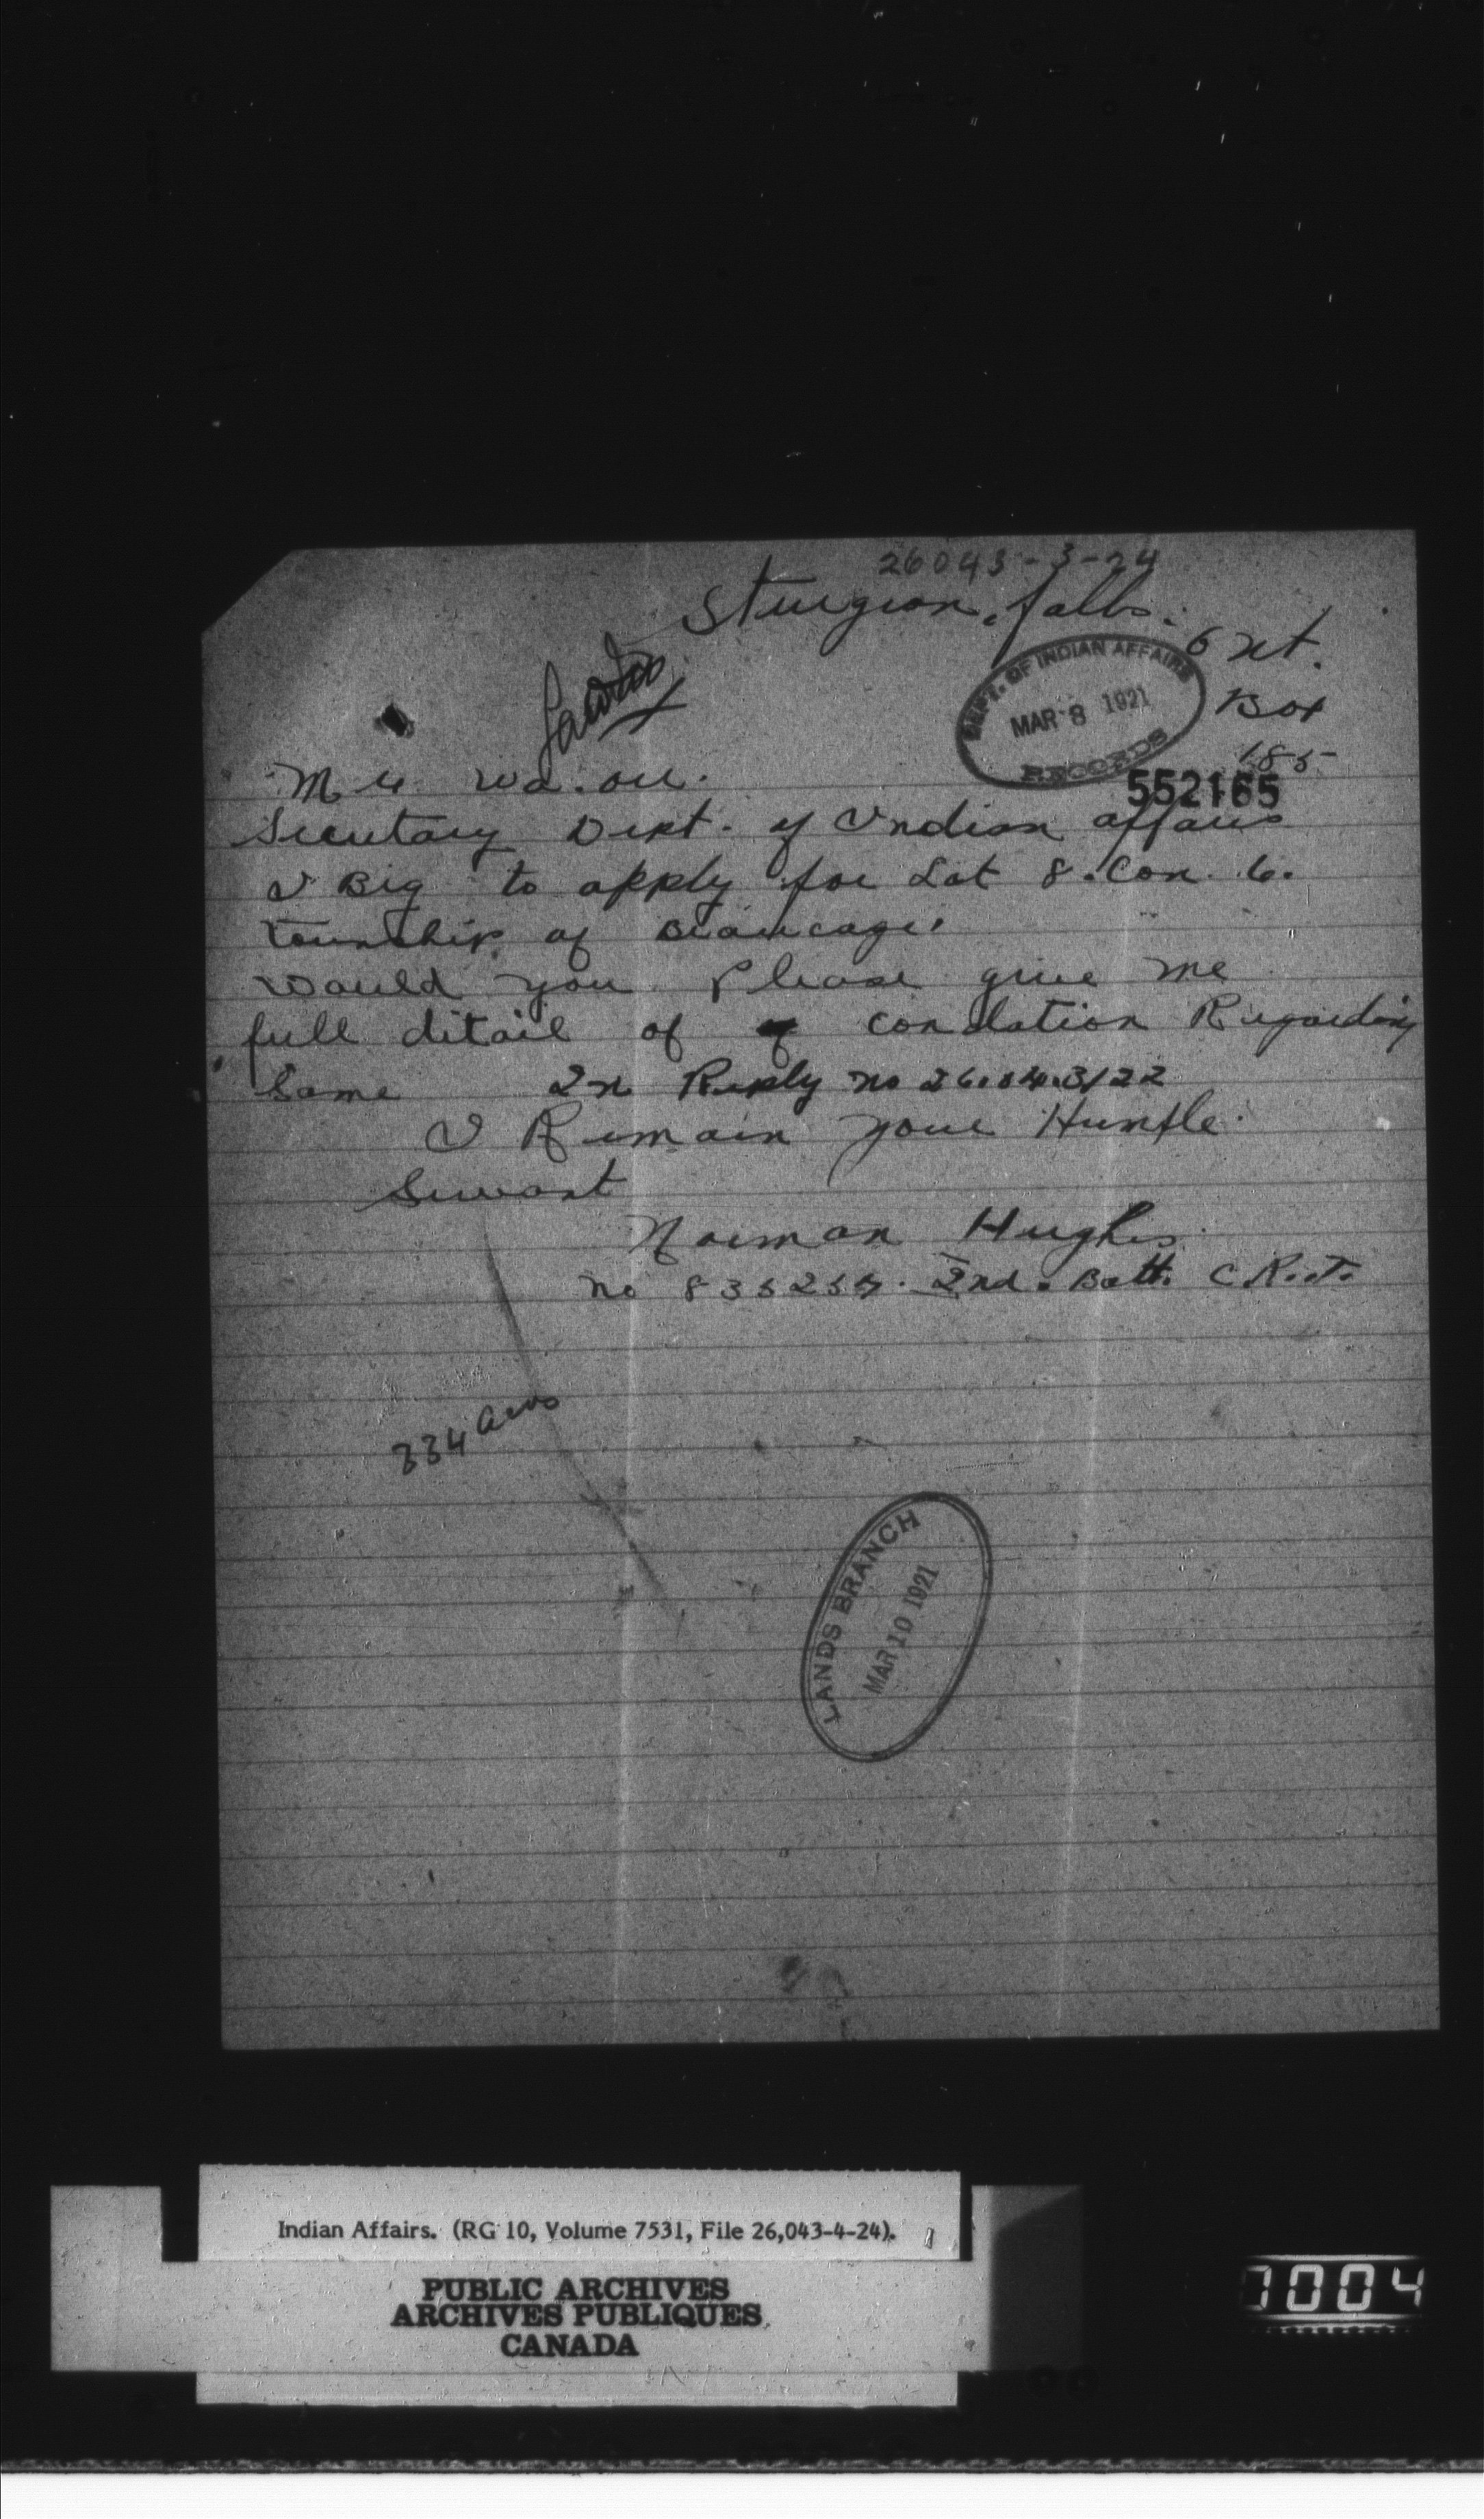 26043-3-24
Sturgeon. falls.
Ont.
Box
185
DEPT. OF INDIAN AFFAIRS
MAR 8 1921
RECORDS
552165
Mr
Secutary Dept. of Indian affairs
I Beg to apply for Lot 8. Con. 6.
township of Beaucage.
Would you Please give me
full ditail of condation Regarding
Same In Reply no 26.043/22
I Remain your Humble
Servant
Norman Hughes
no 2nd. Batt. C.R.T.
334 acres
LANDS BRANCH
MAR 10 1921
Indian Affairs. (RG 10, Volume 7531, File 26,043-4-24).
PUBLIC ARCHIVES
ARCHIVES PUBLIQUES
CANADA
7004